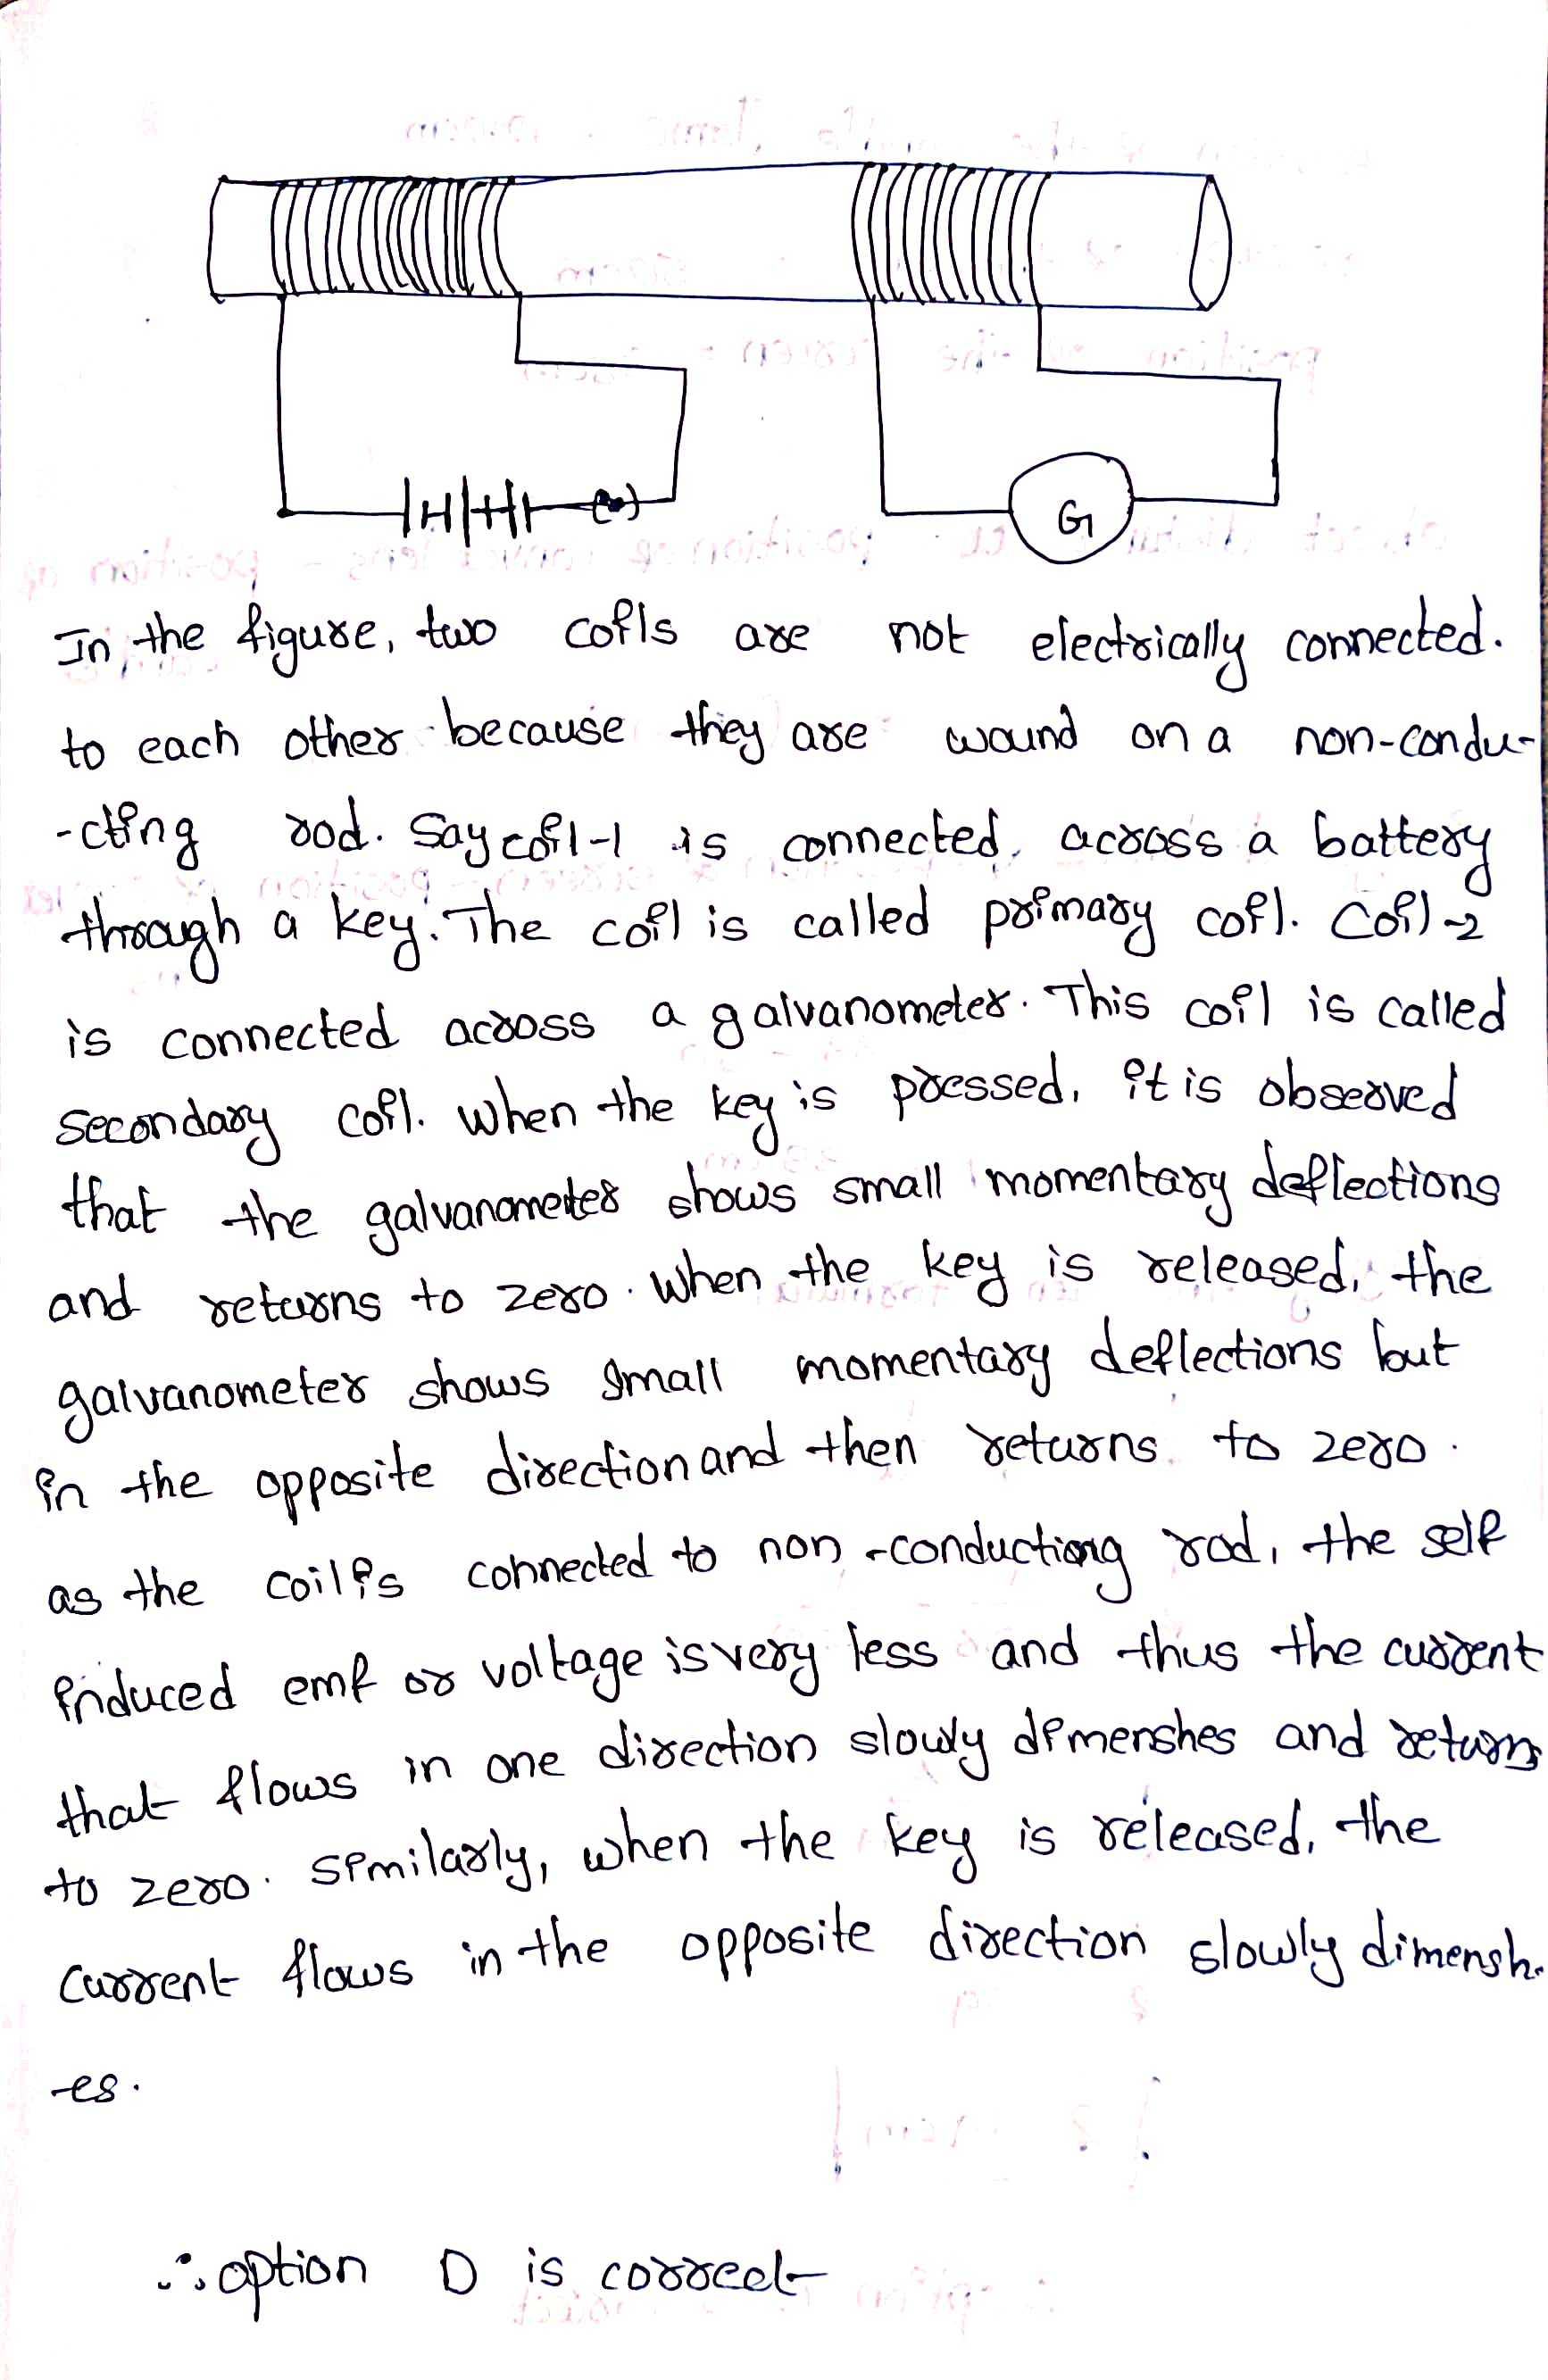 G
In the figure, two coils are not electrically connected.
to each other because they are wound on a non-condu-
-cting rod. Say coil-1 is connected, across a battery
through a key. The coil is called primary coil. Coil-2
is connected across a galvanometer. This coil is called
secondary coil. when the key is pressed, it is observed
that the galvanometer shows small momentary deflections
and returns to zero. When the key is released, the
galvanometer shows small momentary deflections but
in the opposite direction and then returns to zero.
as the coil is connected to non-conductiong rod, the self
induced emf or voltage is very less and thus the current
that flows in one direction slowly dimenshes and returns
to zero. similarly, when the key is released, the
current flows in the opposite direction slowly dimensh-
-es.
∴ option D is correct